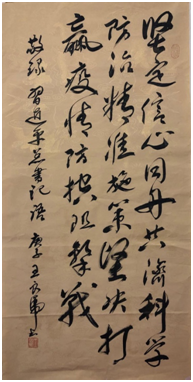 坚定信心同舟共济科学
防治精准施策坚决打
赢疫情防控阻击战
敬录习近平总书记语 庚子王长虎书